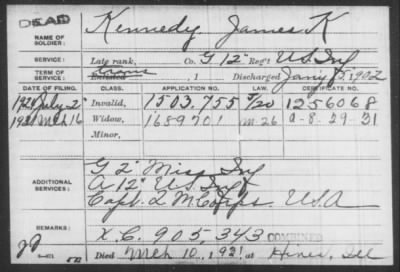 DEAD
NAME OF SOLDIER: Kennedy, James K
SERVICE: Late rank, Co. G 12 Reg't U.S. Inf
TERM OF SERVICE: Enlisted , 1 Discharged Jany , 1902
DATE OF FILING. CLASS. APPLICATION NO. LAW. CERTIFICATE NO.
1920 July 2 Invalid, 1503.755 5/20 1256068
1921 Mch 16 Widow, 1689701 M-26 A-8-29-31
Minor,
ADDITIONAL SERVICES: G 2" Miss Inf
A 12" U.S. Inf
Capt. Q M Corps U.S.A
REMARKS: X.C. 905,343 COMBINED
Died Mch 10, 1921 at Hines, Ill